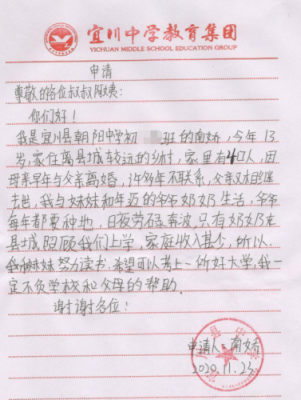 宜川中学教育集团
YICHUAN MIDDLE SCHOOL EDUCATION GROUP
申请
尊敬的各位叔叔阿姨：
你们好！
我是宜川县朝阳中学初 班的南娇，今年13
岁，家住离县城较远的乡村，家里有4口人，因
母亲早年与父亲离婚，许多年不联系，父亲又
去世，我与妹妹和年迈的爷爷奶奶生活，爷爷
每年都要种地，日夜劳碌奔波，只有奶奶在
县城照顾我们上学，家庭收入甚少，所以
我和妹妹努力读书，希望可以考上一所好大学，我一
定不负学校和父母的帮助。
谢谢各位！
申请人：南娇
2020.11.23